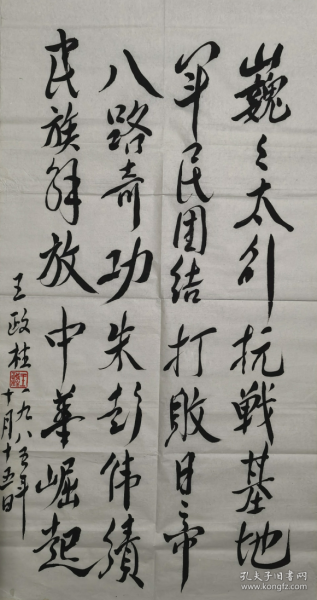 巍々太行抗战基地
军民团结打败日帝
八路奇功朱彭伟绩
民族解放中华崛起
王政柱
一九八五年
十月十五日
孔夫子旧书网